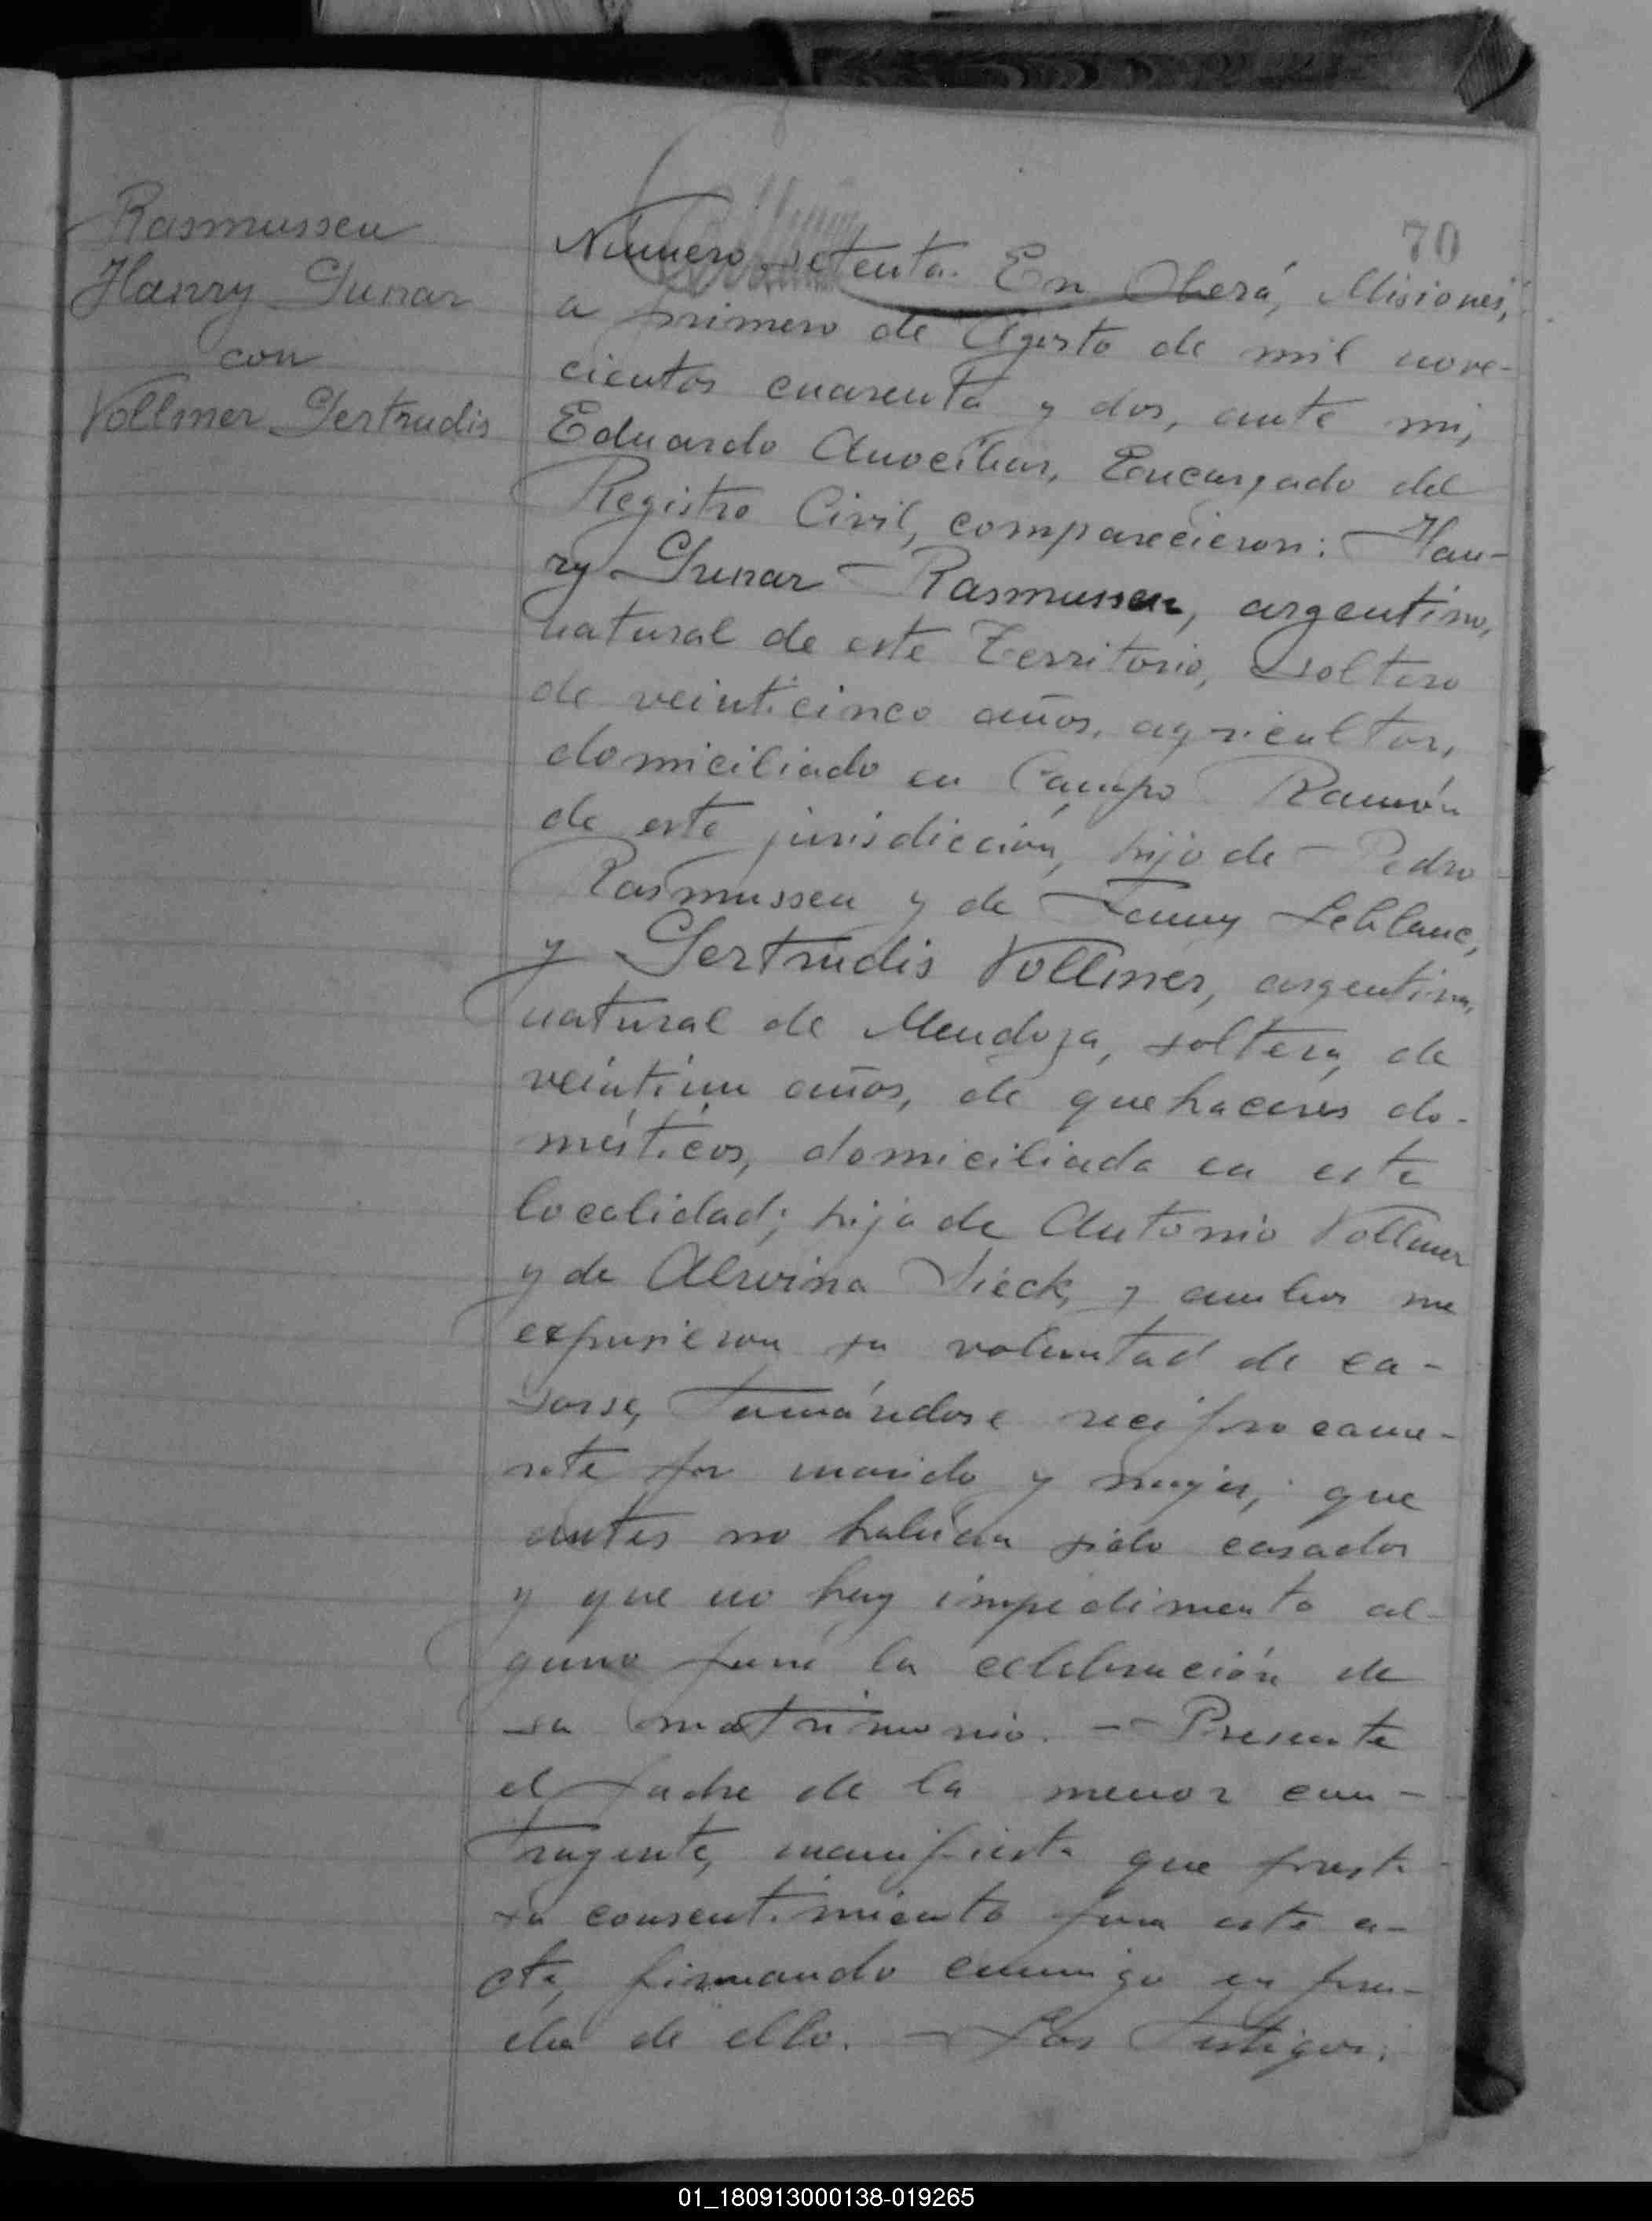 Rasmussen
Hanry Gunar
con
Vollmer Gertrudis
70
Numero setenta. En Oberá, Misiones,
a primero de Agosto de mil nove-
cientos cuarenta y dos, ante mi,
Eduardo Encargado del
Registro Civil, comparecieron: Han-
ry Gunar Rasmussen, argentino,
natural de este Territorio, soltero
de veinticinco años, agricultor,
domiciliado en Campo Ramón
de esta jurisdicción, hijo de Pedro
Rasmussen y de Fanny Leblanc,
y Gertrudis Vollmer, argentina,
natural de Mendoza, soltera, de
veintiun años, de quehaceres do-
mésticos, domiciliada en esta
localidad; hija de Antonio Vollmer
y de Alwina Sieck, y ambos me
expusieron su voluntad de ca-
sarse, tomándose reciprocame-
nte por marido y mujer, que
antes no habían sido casados
y que no hay impedimento al-
guno para la celebración de
su matrimonio. — Presente
el padre de la menor con-
trayente, manifiesta que presta
su consentimiento para este a-
cto, firmando conmigo en prue-
ba de ello. — Los testigos:
01_180913000138-019265